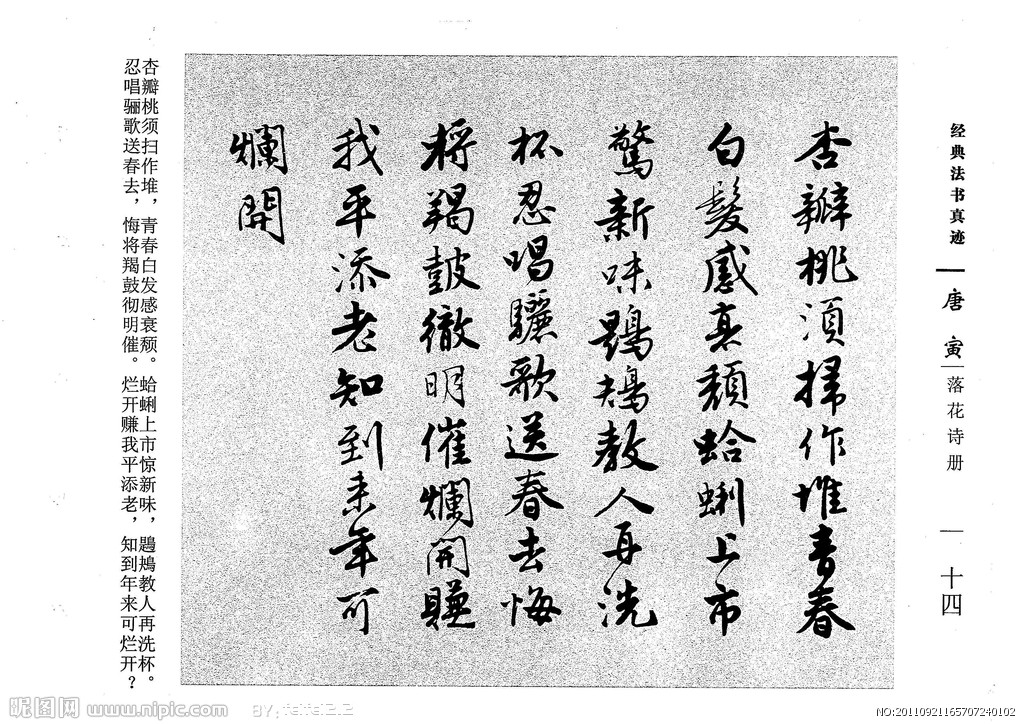 经典法书真迹
唐寅
落花诗册
十四
杏瓣桃須掃作堆青春
白髮感衰頽蛤蜊上市
驚新味鶗鴂教人再洗
杯忍唱驪歌送春去悔
將羯鼓徹明催爛開賺
我平添老知到来年可
爛開
杏瓣桃须扫作堆，青春白发感衰颓。蛤蜊上市惊新味，鶗鴂教人再洗杯。
忍唱骊歌送春去，悔将羯鼓彻明催。烂开赚我平添老，知到年来可烂开？
昵图网 www.nipic.com
BY:
NO:20110921165707240102